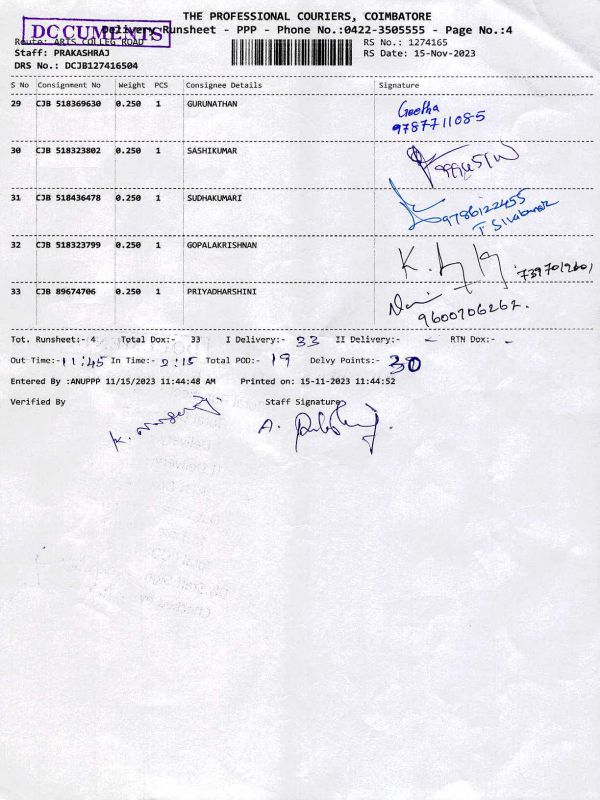 THE PROFESSIONAL COURIERS, COIMBATORE
DOCUMENTS
Delivery Runsheet - PPP - Phone No.:0422-3505555 - Page No.:4
Route: ARTS COLLEG ROAD
RS No.: 1274165
Staff: PRAKASHRAJ
RS Date: 15-Nov-2023
DRS No.: DCJB127416504
S No Consignment No Weight PCS Consignee Details Signature
29 CJB 518369630 0.250 1 GURUNATHAN
Geetha
9787711085
30 CJB 518323802 0.250 1 SASHIKUMAR
31 CJB 518436478 0.250 1 SUDHAKUMARI
9786122455
T Sivakumar
32 CJB 518323799 0.250 1 GOPALAKRISHNAN
33 CJB 89674706 0.250 1 PRIYADHARSHINI
9600706262.
Tot. Runsheet:- 4 Total Dox:- 33 I Delivery:- 33 II Delivery:- - RTN Dox:- -
Out Time:- 11:45 In Time:- 2:15 Total POD:- 19 Delvy Points:- 30
Entered By :ANUPPP 11/15/2023 11:44:48 AM Printed on: 15-11-2023 11:44:52
Verified By Staff Signature